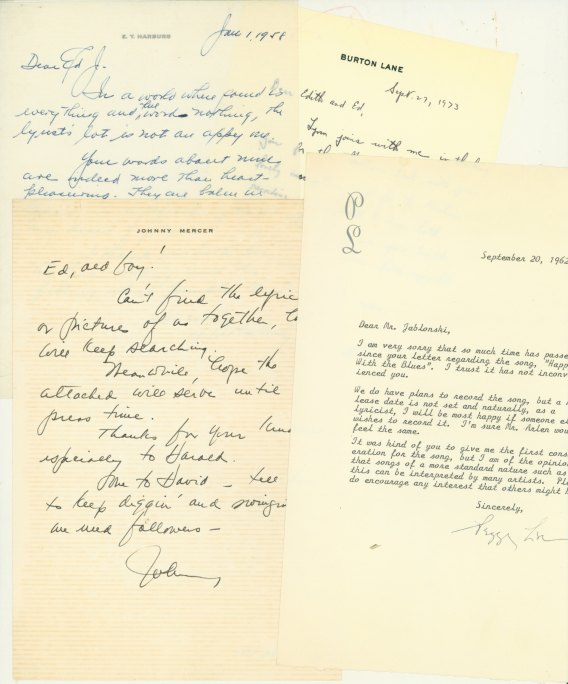 E. Y. HARBURG
Jan 1, 1958
Dear Ed J.
In a world where sound is
everything and the words nothing, the
lyrist's lot is not an appy one
Your words about mine
are indeed more than heart-
pleasuring. They are balm
BURTON LANE
Sept. 27, 1973
Edith and Ed,
Lynn joins with me in
JOHNNY MERCER
Ed, old boy!
Can't find the lyric
or pictures of us together,
will keep searching.
Meanwhile, hope the
attached will serve until
press time.
Thanks for your
especially to Harold.
to David — tell
to keep diggin' and swingin
we need followers —
Johnny
P
L
September 20, 1962
Dear Mr. Jablonski,
I am very sorry that so much time has passe
since your letter regarding the song, "Happ
With the Blues". I trust it has not inconv
ienced you.
We do have plans to record the song, but a
lease date is not set and naturally, as a
Lyricist, I will be most happy if someone e
wishes to record it. I'm sure Mr. Arlen wou
feel the same.
It was kind of you to give me the first cons
eration for the song, but I am of the opinio
that songs of a more standard nature such as
this can be interpreted by many artists. Pl
do encourage any interest that others might
Sincerely,
Peggy Lee